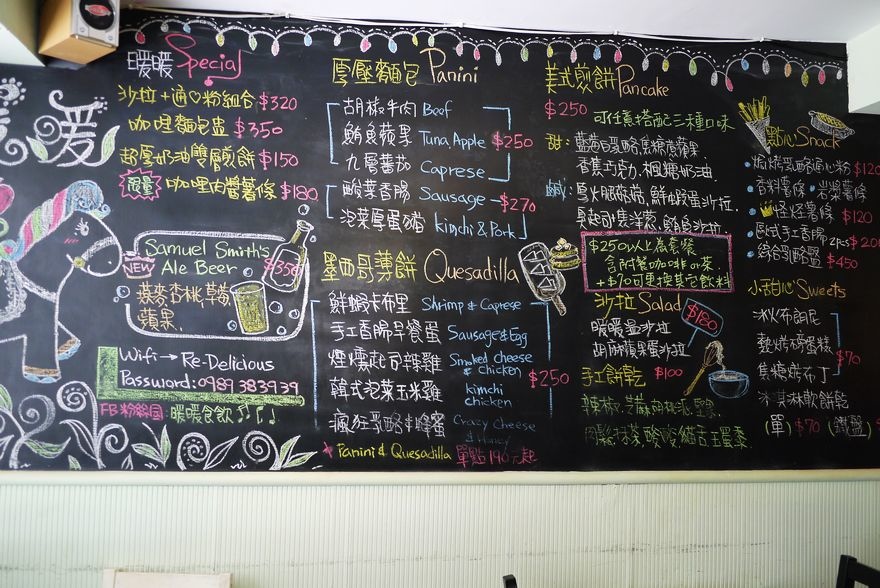 暖
暖暖 Special
沙拉+通心粉組合 $320
咖哩麵包盅 $350
超厚奶油雙層餅 $150
限量 咖哩肉醬薯條 $180
Samuel Smith's
NEW Ale Beer $350
燕麥 杏桃 草莓
蘋果.
Wifi → Re-Delicious
Passward: 0989383939
FB 粉絲團: 暖暖食飲
厚壓麵包 Panini
胡椒牛肉 Beef
鮪魚蘋果 Tuna, Apple $250
九層蕃茄 Caprese
酸菜香腸 Sausage $270
泡菜厚蛋豬 kimchi & Pork
墨西哥薄餅 Quesadilla
鮮蝦卡布里 Shrimp & Caprese
手工香腸早餐蛋 Sausage & Egg
煙燻起司辣雞 Smoked cheese & chicken $250
韓式泡菜玉米雞 kimchi chicken
瘋狂乳酪蜂蜜 Crazy Cheese & Honey
Panini & Quesadilla 單點190元起
美式煎餅 Pancake
$250 可任意搭配三種口味
甜: 藍莓乳酪.焦糖蘋果
香蕉巧克力.楓糖奶油
鹹: 燻菇菇.鮮蝦蛋沙拉.
洋蔥.鮪魚沙拉.
$250以上為套餐
含附餐咖啡or茶
+$70可更換其它飲料
沙拉 Salad $180
暖暖溫沙拉
胡麻蘋果蛋沙拉
手工餅乾 $100
點心 Snack
焗烤乳酪通心粉 $120
香料薯條.岩漿薯條
怪怪薯條 $120
歐式手工香腸 2pcs $20
綜合乳酪盤 $450
小甜心 Sweets
冰火布朗尼
熱烤磅蛋糕 $70
焦糖烤布丁
冰淇淋軟餅乾
(單) $70